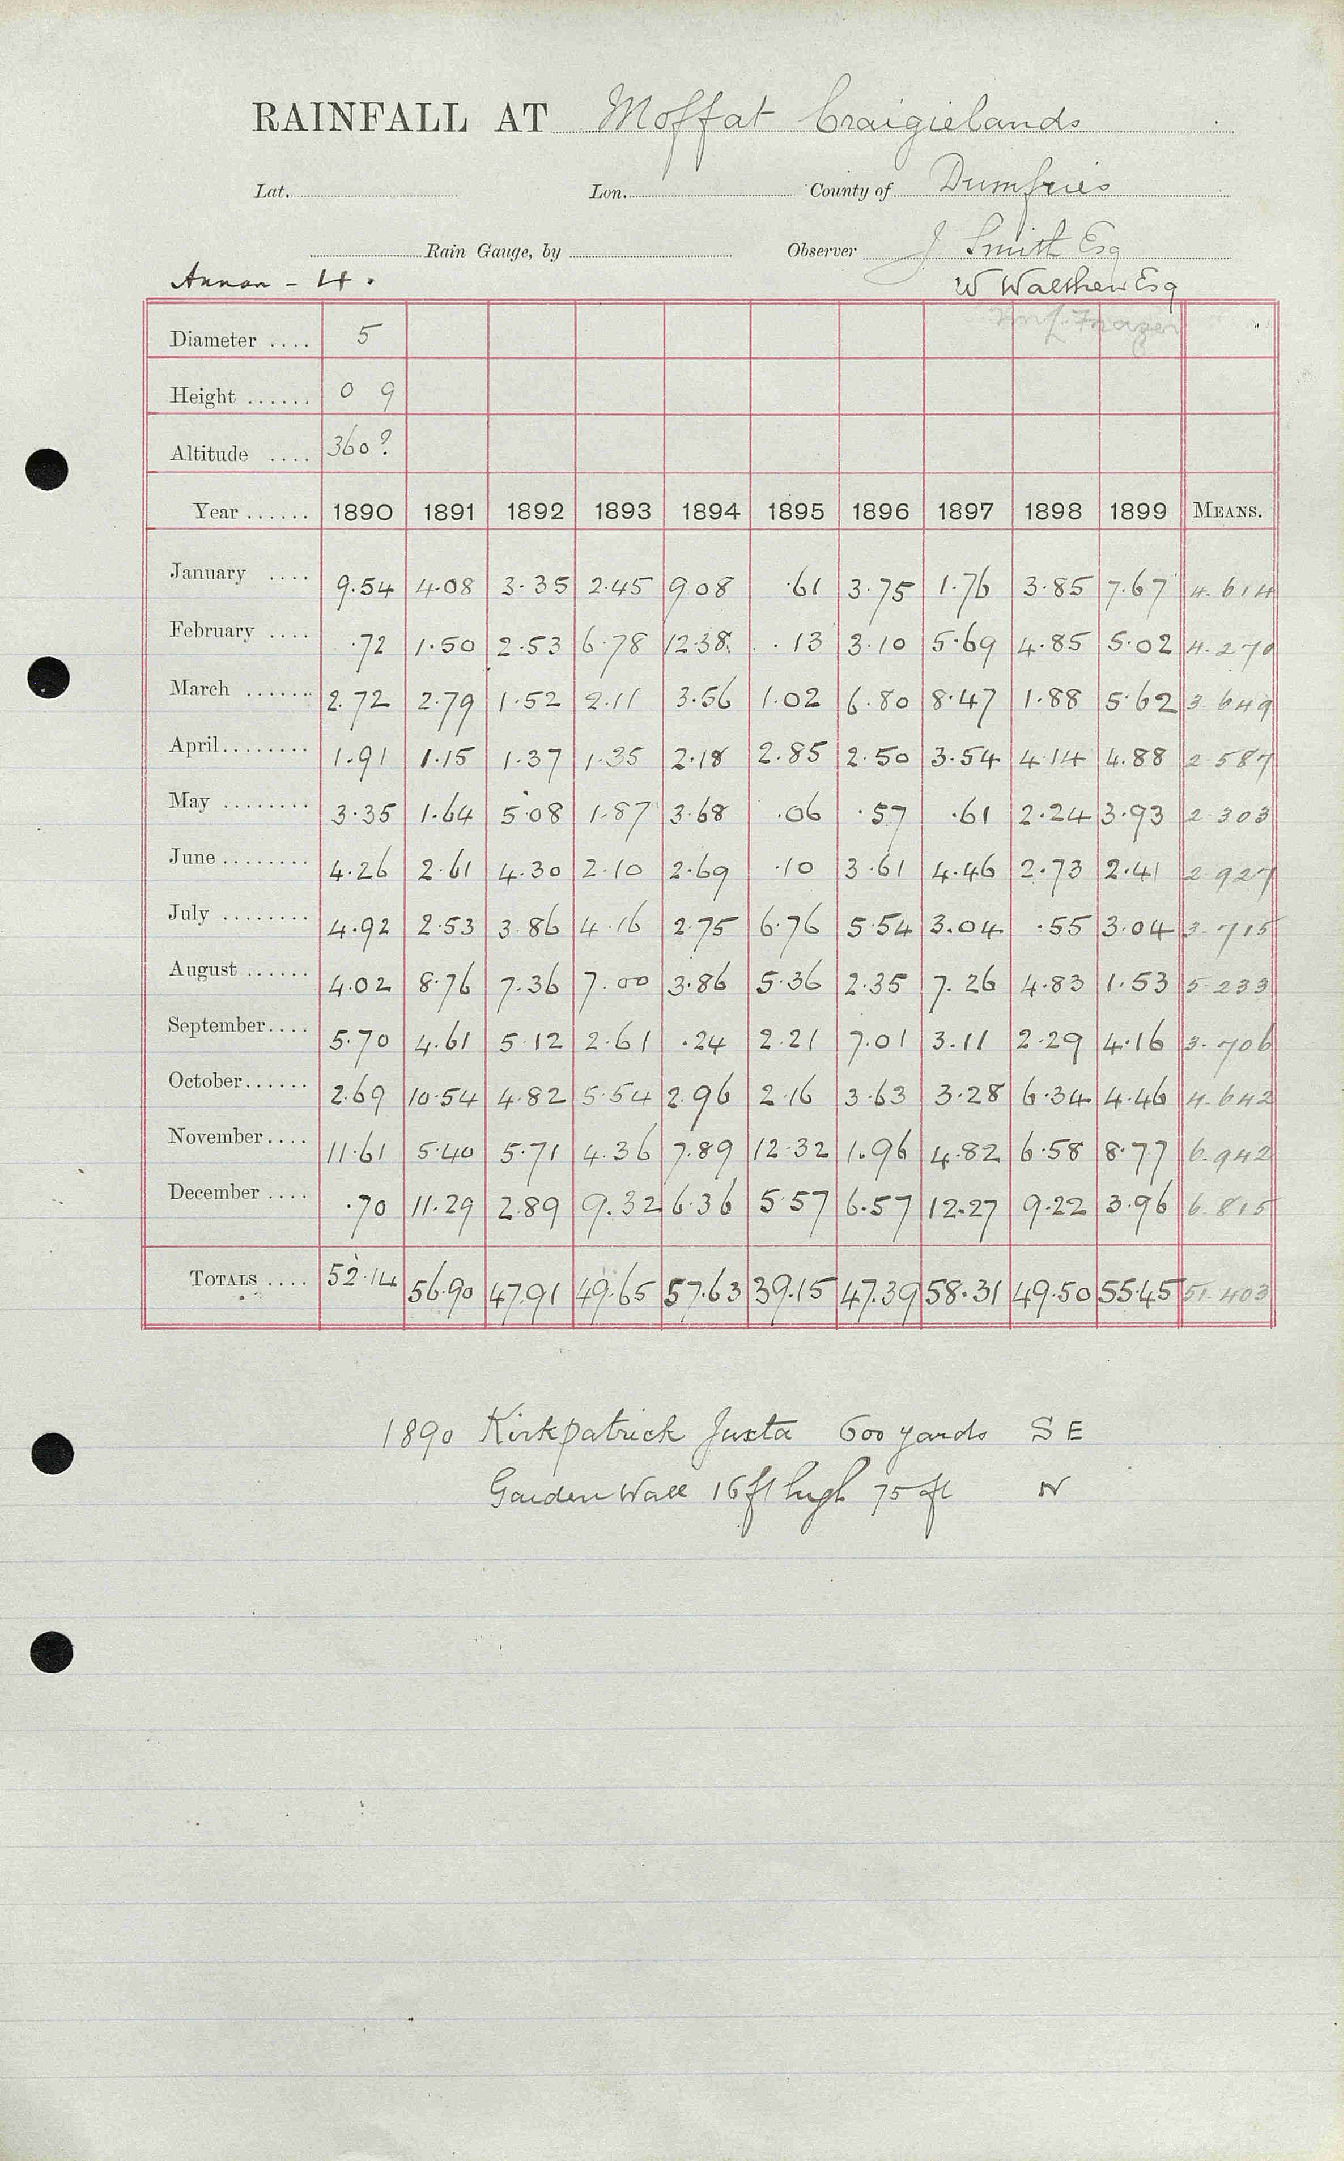 RAINFALL AT Moffat Craigielands
Lat. Lon. County of Dumfries
Rain Gauge, by Observer J Smith Esq
Annan - 4. W Walthew Esq
Diameter .... 5
Height ...... 0 9
Altitude .... 360?
Year ...... 1890 1891 1892 1893 1894 1895 1896 1897 1898 1899 MEANS.
January .... 9.54 4.08 3.35 2.45 9.08 .61 3.75 1.76 3.85 7.67 4.614
February .... .72 1.50 2.53 6.78 12.38 .13 3.10 5.69 4.85 5.02 4.270
March ....... 2.72 2.79 1.52 2.11 3.56 1.02 6.80 8.47 1.88 5.62 3.649
April ........ 1.91 1.15 1.37 1.35 2.18 2.85 2.50 3.54 4.14 4.88 2.587
May ........ 3.35 1.64 5.08 1.87 3.68 .06 .57 .61 2.24 3.93 2.303
June ........ 4.26 2.61 4.30 2.10 2.69 .10 3.61 4.46 2.73 2.41 2.927
July ........ 4.92 2.53 3.86 4.16 2.75 6.76 5.54 3.04 .55 3.04 3.715
August ...... 4.02 8.76 7.36 7.00 3.86 5.36 2.35 7.26 4.83 1.53 5.233
September.... 5.70 4.61 5.12 2.61 .24 2.21 7.01 3.11 2.29 4.16 3.706
October...... 2.69 10.54 4.82 5.54 2.96 2.16 3.63 3.28 6.34 4.46 4.642
November.... 11.61 5.40 5.71 4.36 7.89 12.32 1.96 4.82 6.58 8.77 6.942
December .... .70 11.29 2.89 9.32 6.36 5.57 6.57 12.27 9.22 3.96 6.815
TOTALS .... 52.14 56.90 47.91 49.65 57.63 39.15 47.39 58.31 49.50 55.45 51.403
1890 Kirkpatrick Juxta 600 yards S E
Garden Wall 16 ft high 75 ft N